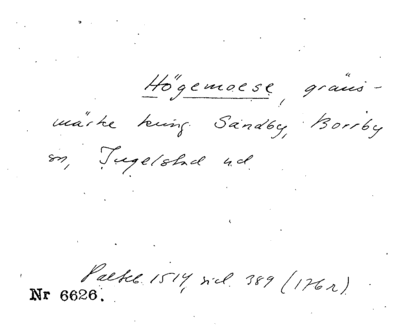 Högemoese, gräns-
märke kring Sandby, Borrby
sn, Ingelstad hd.
Palteb. 1514, sid. 389 (176 r).
Nr 6626.